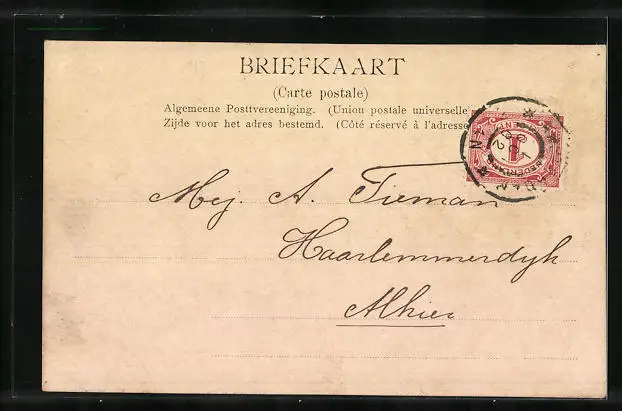 BRIEFKAART
(Carte postale)
Algemeene Postvereeniging. (Union postale universelle
Zijde voor het adres bestemd. (Côté réservé à l'adresse
1
Mej. A. Tieman
Haarlemmerdyk
Alhier